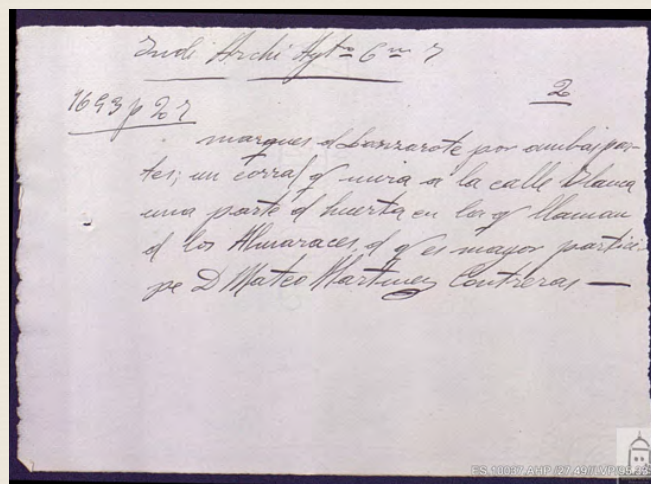 Indi Archi Aytº 6
2
1693 p 2
marques d Lanzarote por ambas par-
tes; un corral q mira a la calle blanca
una parte d huerta en la q llaman
d los Almaraces, d q es mayor partici-
pe D Mateo Martinez Contreras —
ES.10037.AHP